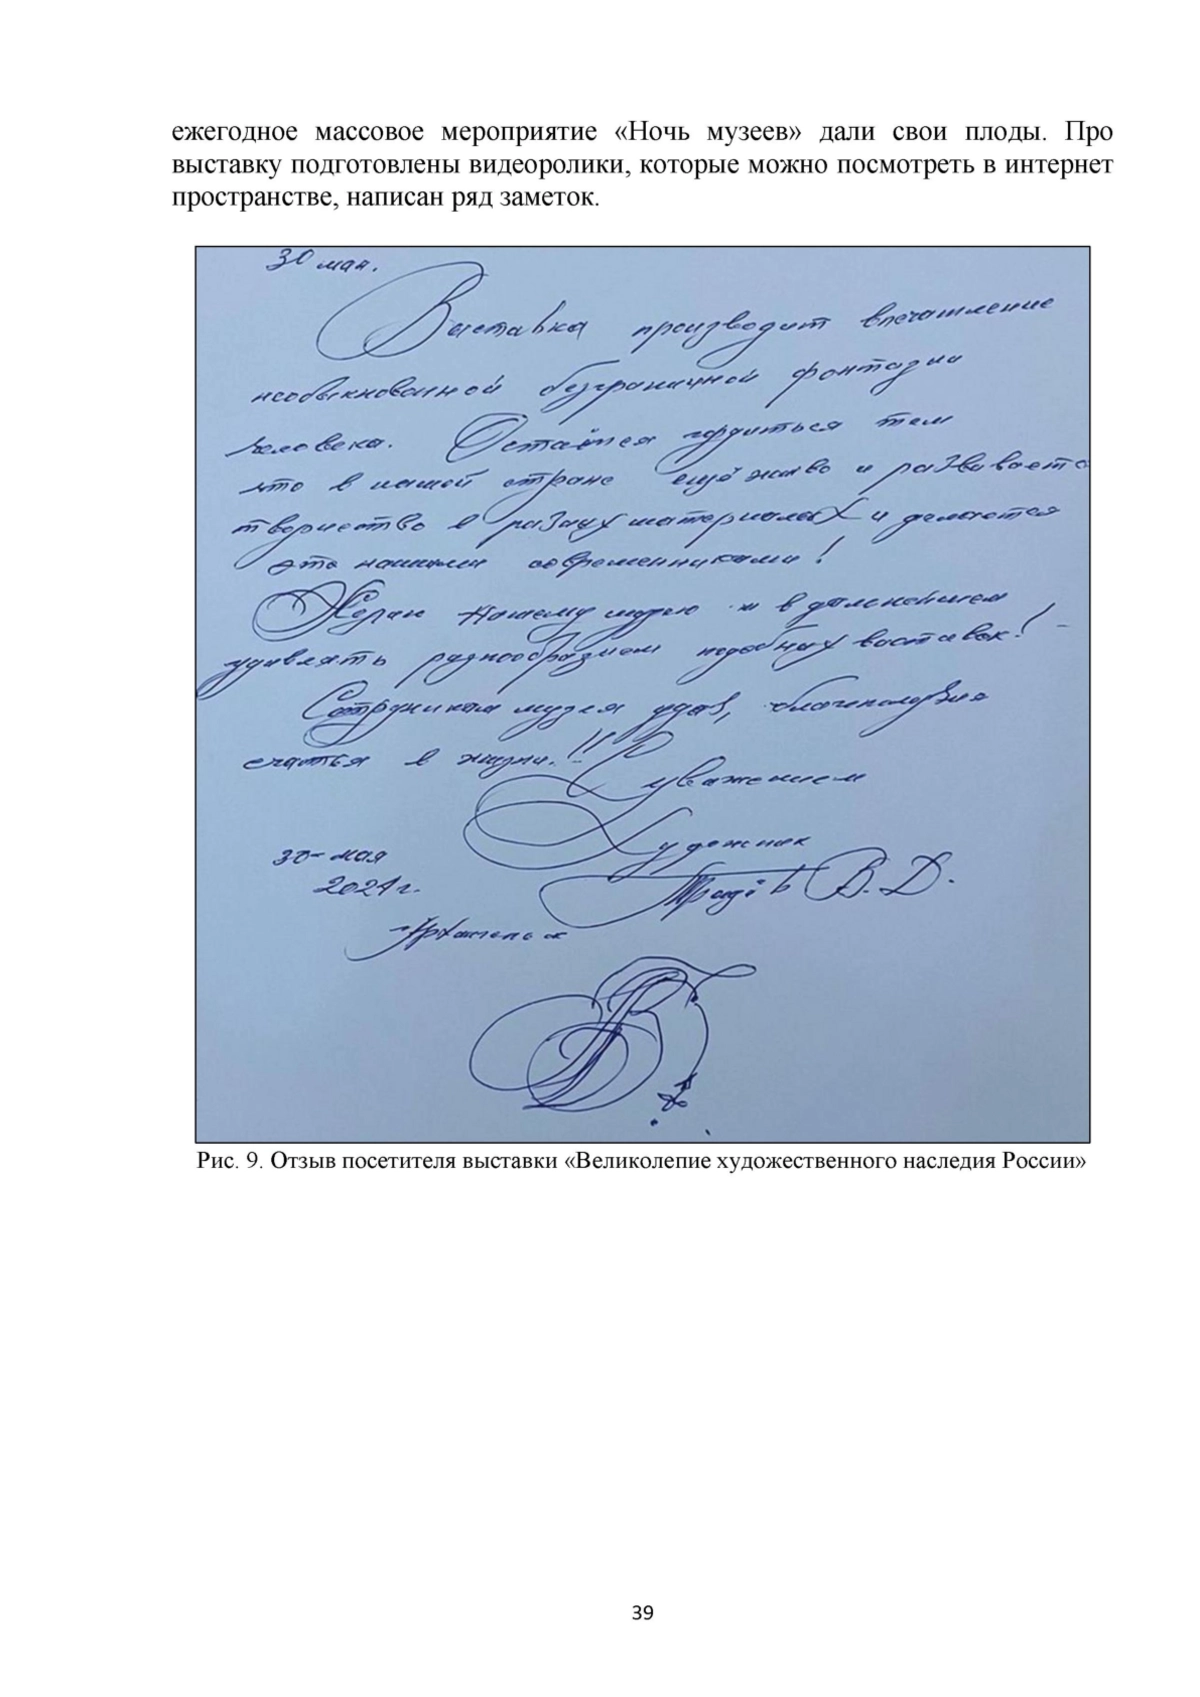 ежегодное массовое мероприятие «Ночь музеев» дали свои плоды. Про
выставку подготовлены видеоролики, которые можно посмотреть в интернет
пространстве, написан ряд заметок.
30 мая.
Выставка производит впечатление
необыкнованной безграничной фонтазии
человека. Остаётся гордиться тем
что в нашей стране ещё живо и развивается
творчество в разных материалах и делается
это нашими современниками!
Желаю нашему музею и в дальнейшем
удивлять разнообразием подобных выставок!
Сотрудникам музея удач, благополучия
счастья в жизни.!!!
С уважением
Художник
30 - мая
2021 г.
В. Д.
Архангельск
Рис. 9. Отзыв посетителя выставки «Великолепие художественного наследия России»
39